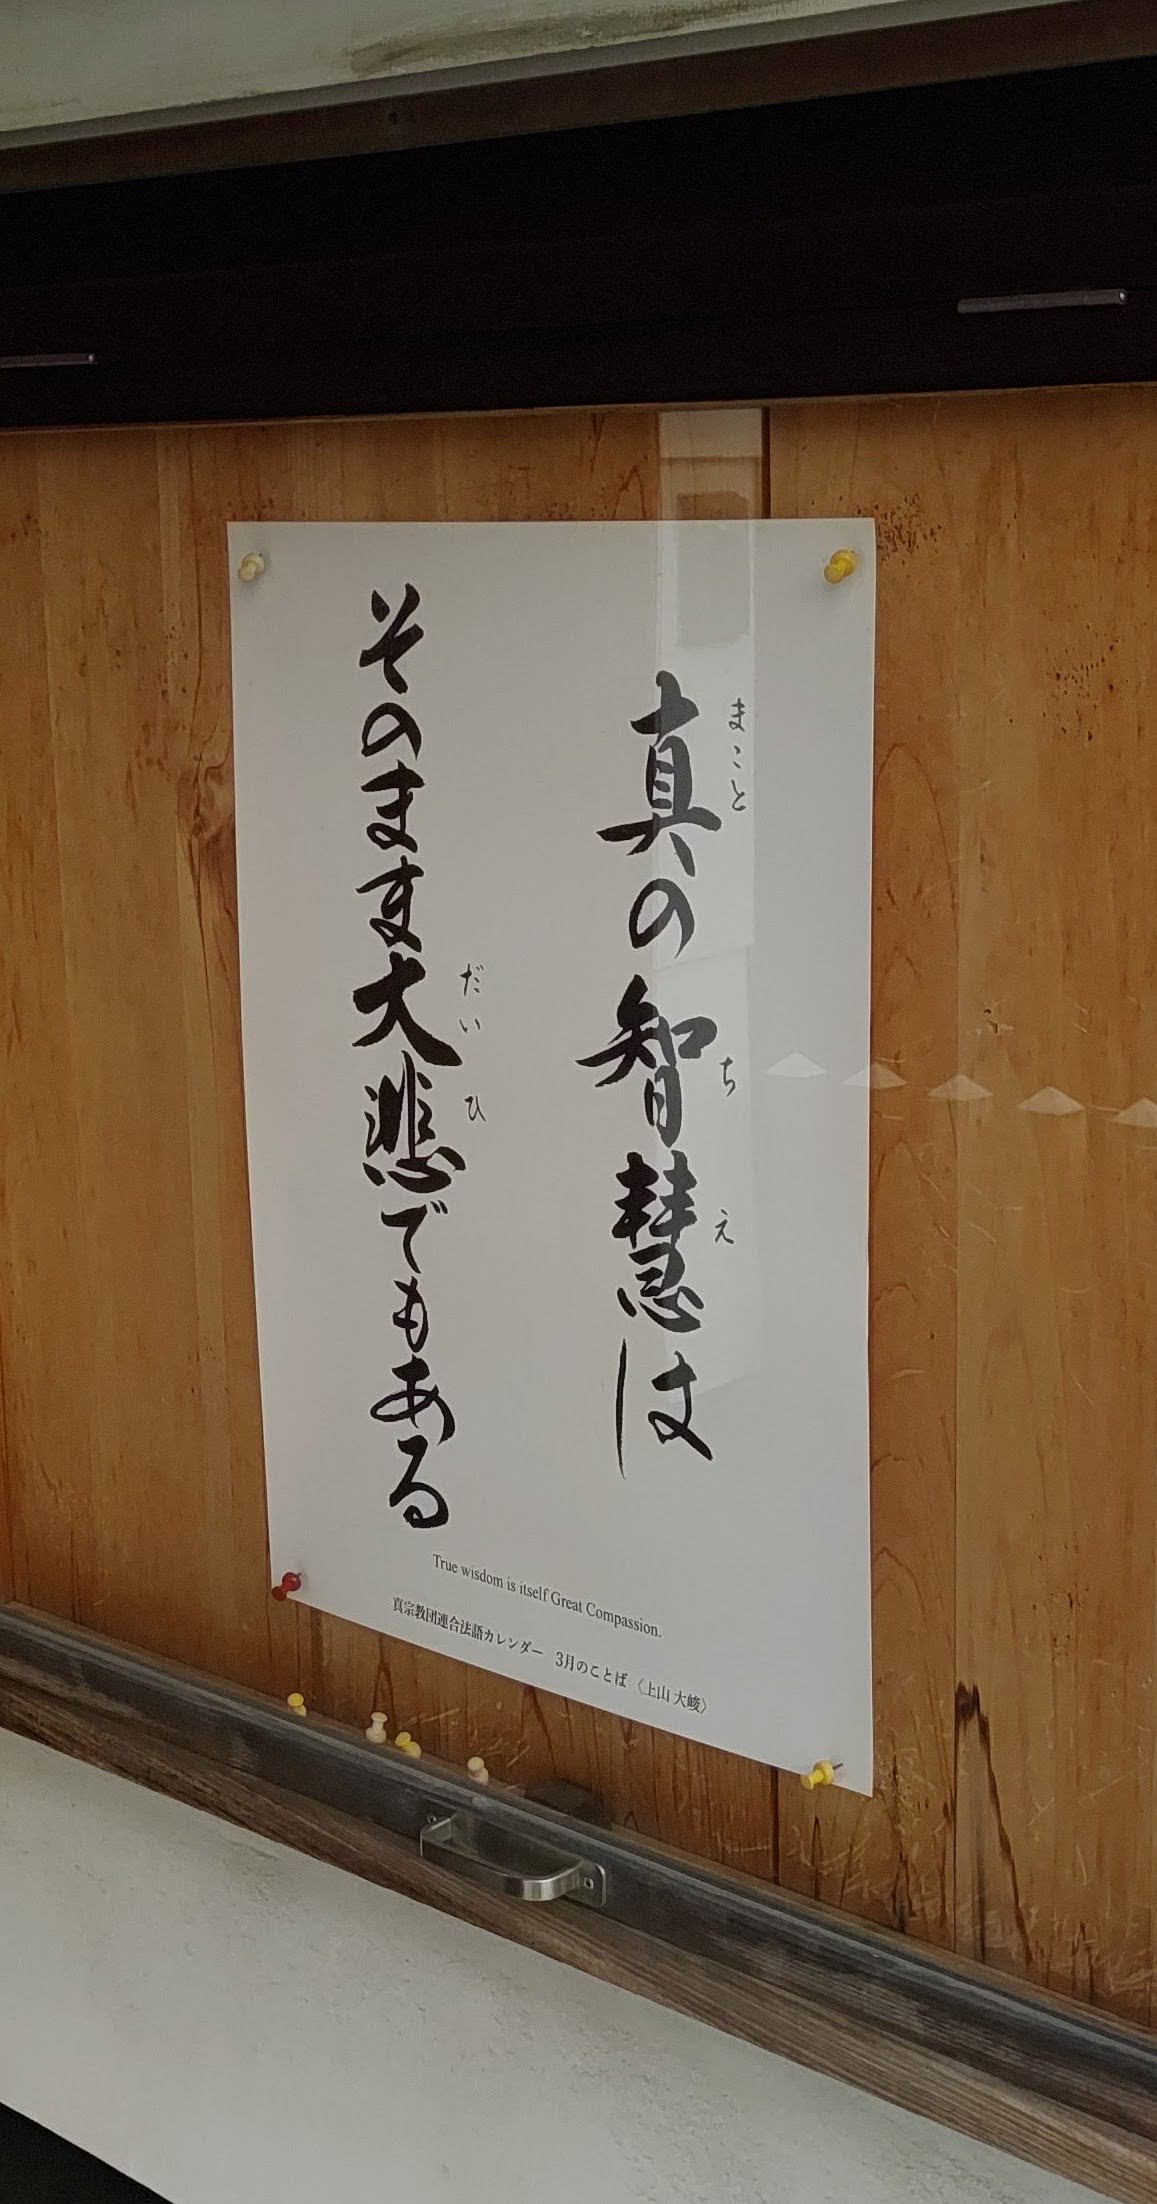 真の智慧は
まこと
ち
え
そのまま大悲でもある
だいひ
True wisdom is itself Great Compassion.
真宗教団連合法語カレンダー 3月のことば〈上山 大峻〉